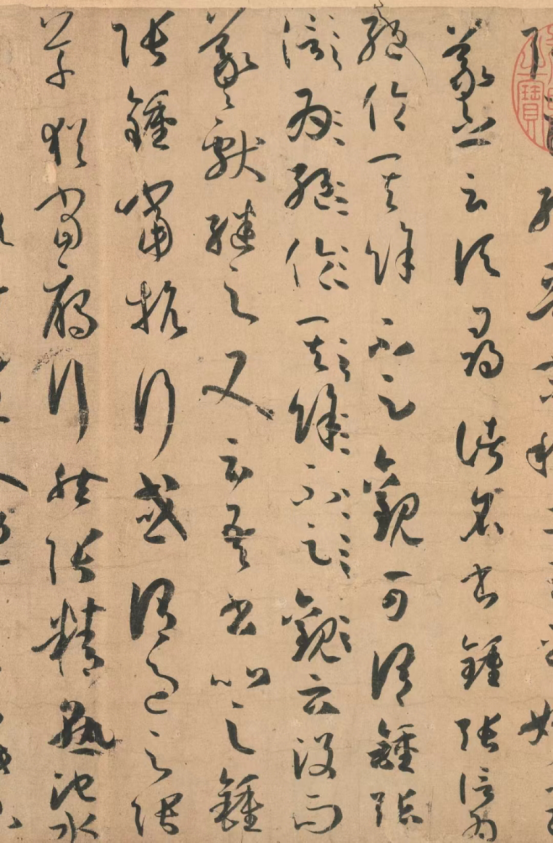 羲之云頃尋諸名書鍾張信為
絕倫其餘不足觀可謂鍾張
信為絕倫其餘不足觀云沒而
羲獻繼之又云吾書比之鍾
張鍾當抗行或謂過之張
草猶當雁行然張精熟池水